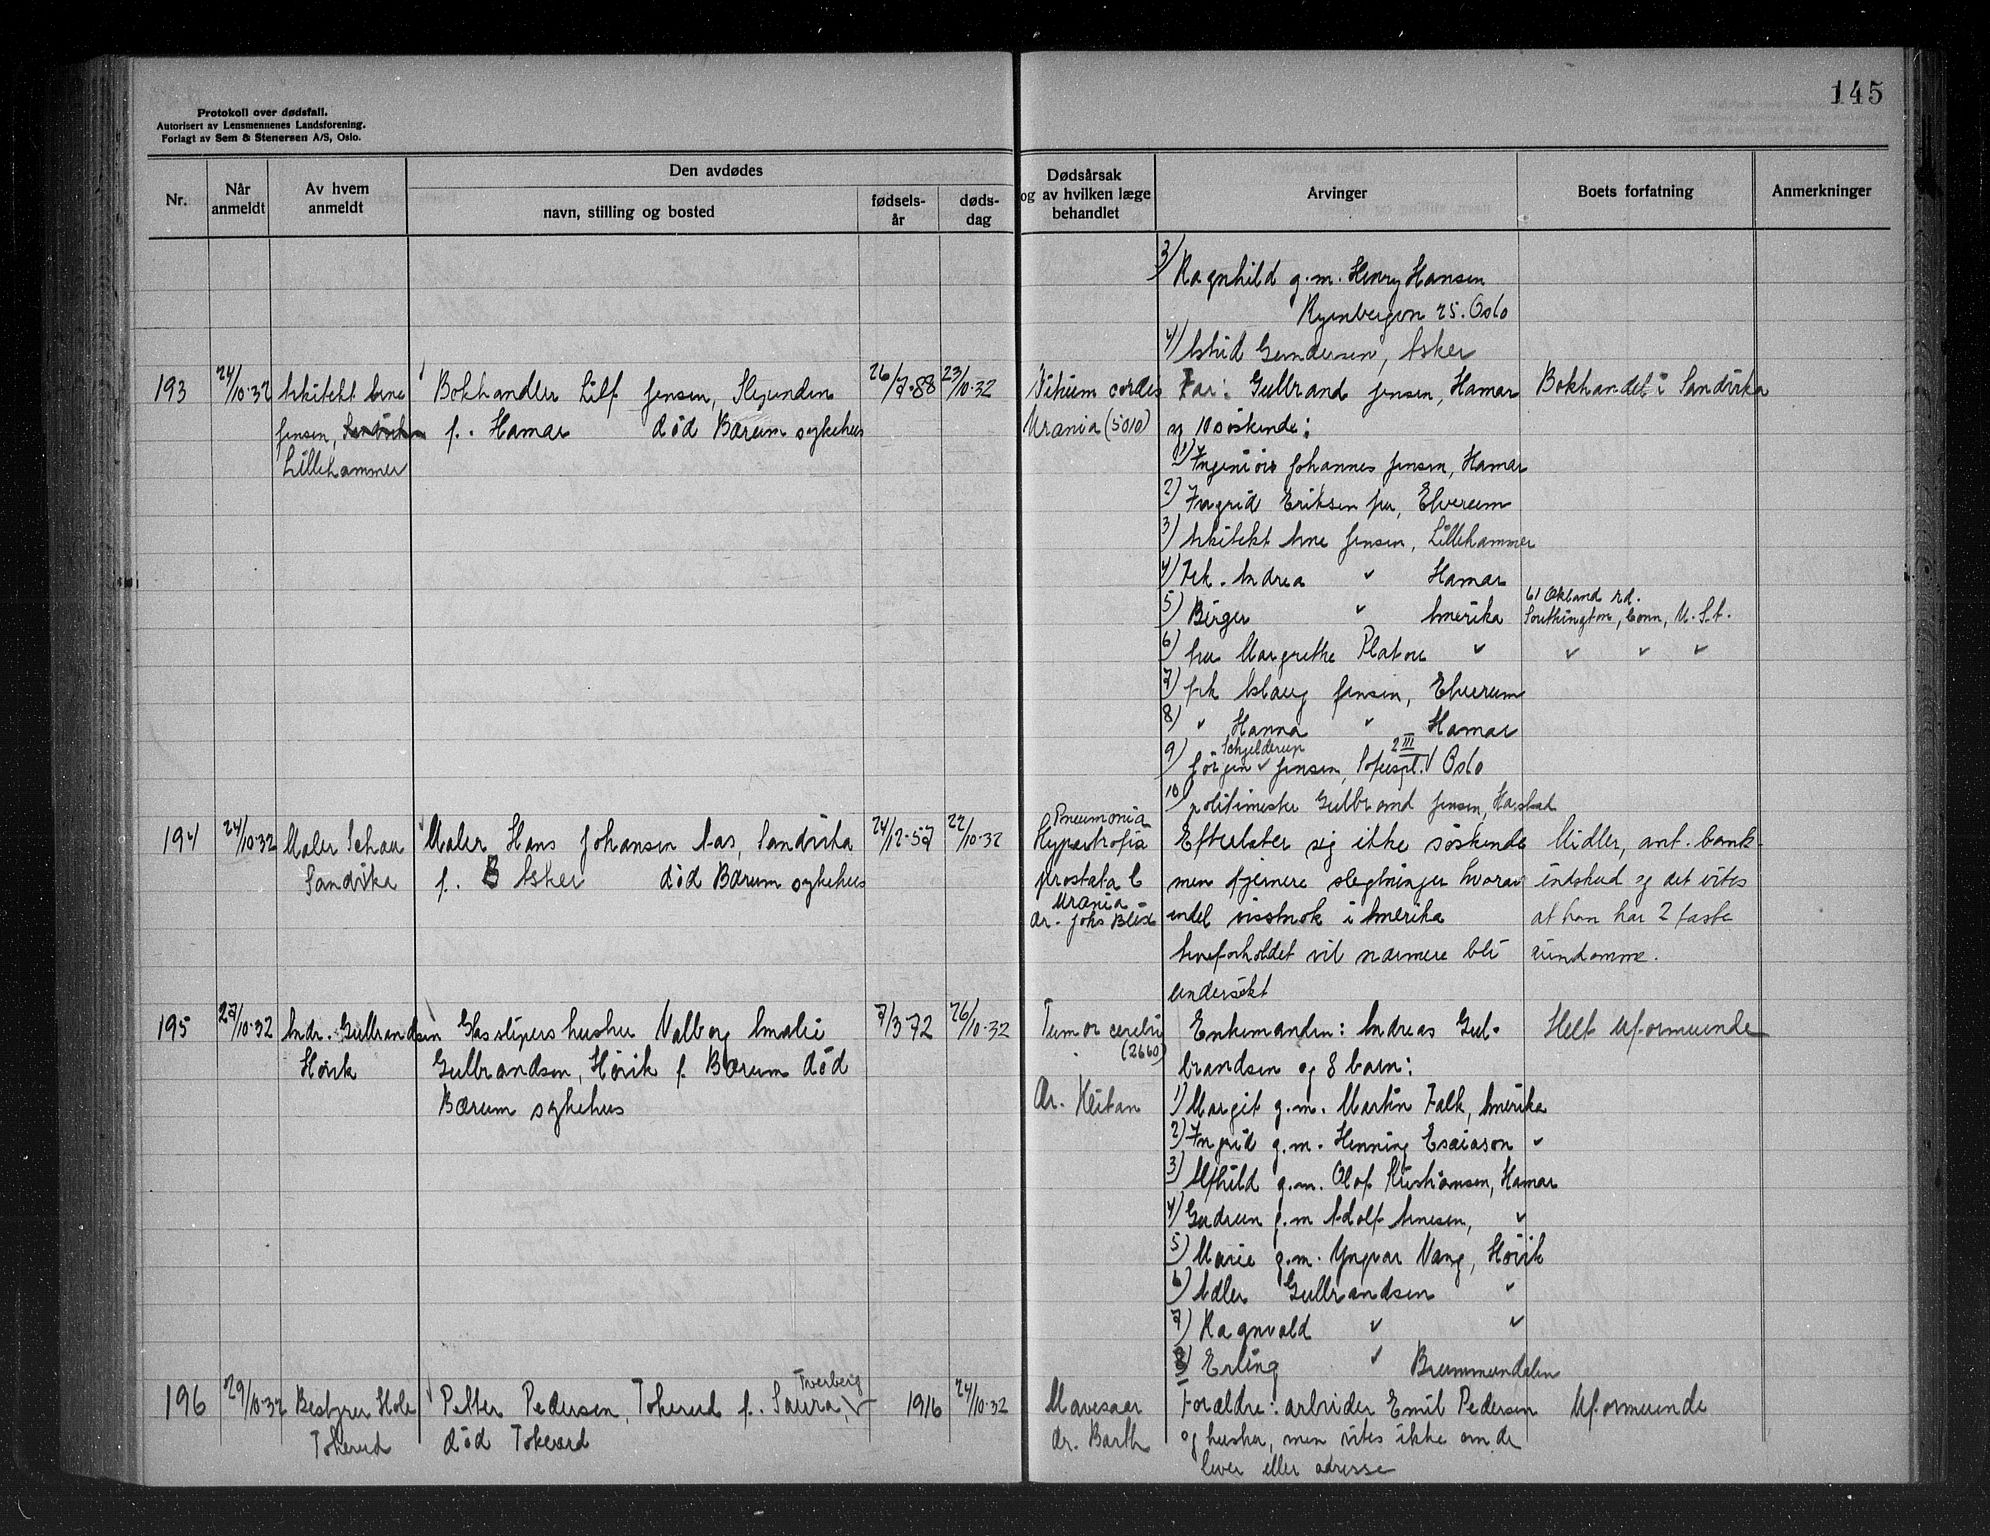 145
Protokoll over dødsfall.
Autorisert av Lensmennenes Landsforening.
Forlagt av Sem & Stenersen A/S, Oslo.
Nr.
Når anmeldt
Av hvem anmeldt
Den avdødes
navn, stilling og bosted
fødsels-år
døds-dag
Dødsårsak og av hvilken læge behandlet
Arvinger
Boets forfatning
Anmerkninger
3) Ragnhild g.m. Henry Hansen
25. Oslo
4) Astrid Gundersen, Asker
193
24/10-32
Arkitekt Arne
Jensen,
Lillehammer
Bokhandler Leif Jensen, Slependen
f. Hamar død Bærum sykehus
26/7-88
23/10-32
Vitium cordis
Urania (5010)
Far: Gulbrand Jensen, Hamar
og 10 søskende:
1) Ingeniør Johannes Jensen, Hamar
2) Ingrid Eriksen fru, Elverum
3) Arkitekt Arne Jensen, Lillehammer
4) Frk. Andrea " Hamar
5) Birger " Amerika
6) fru Margrethe Platou "
7) frk Aslaug Jensen, Elverum
8) " Hanna " Hamar
9) Jørgen Schjelderup Jensen, Sofiespl. 2 III Oslo
10) politimester Gulbrand Jensen, Harstad
Bokhandel i Sandvika
61 Okland rd.
Southington, Conn, U.S.A.
" " "
194
24/10-32
Maler Schau
Sandvika
Maler Hans Johansen Aas, Sandvika
f. Asker død Bærum sykehus
24/12-57
22/10-32
Pneumonia
Hypertrofia
prostata c
Urania
dr. Johs Blix
Efterlater sig ikke søskende
men fjernere slegtninger hvorav
endel visstnok i Amerika
Arveforholdet vil nærmere bli
undersøkt
Midler, ant. bank-
indskud og det vites
at han har 2 faste
eiendomme.
195
27/10-32
Andr. Gulbrandsen
Høvik
Glasslipers hustru Valborg Amalie
Gulbrandsen, Høvik f. Bærum død
Bærum sykehus
7/3-72
26/10-32
Tumor cerebri
(2660)
Dr. Heitan
Enkemanden: Andreas Gul-
brandsen og 8 barn:
1) Margit g.m. Martin Falk, Amerika
2) Ingrid g.m. Henning Esaiason "
3) Alfhild g.m. Olof Kristiansen, Hamar
4) Gudrun g.m Adolf Arnesen, "
5) Marie g.m. Yngvar Vang, Høvik
6) Adler Gulbrandsen "
7) Ragnvald " "
8) Erling " Brummundalen
Helt uformuende
196
29/10-32
Bestyrer Hole
Tokerud
Petter Pedersen, Tokerud f. Saura, Tverberg
død Tokerud
1916
24/10-32
Mavesaar
dr. Barth
Forældre: arbeider Emil Pedersen
og hustru, men vites ikke om de
lever eller adresse
Uformuende